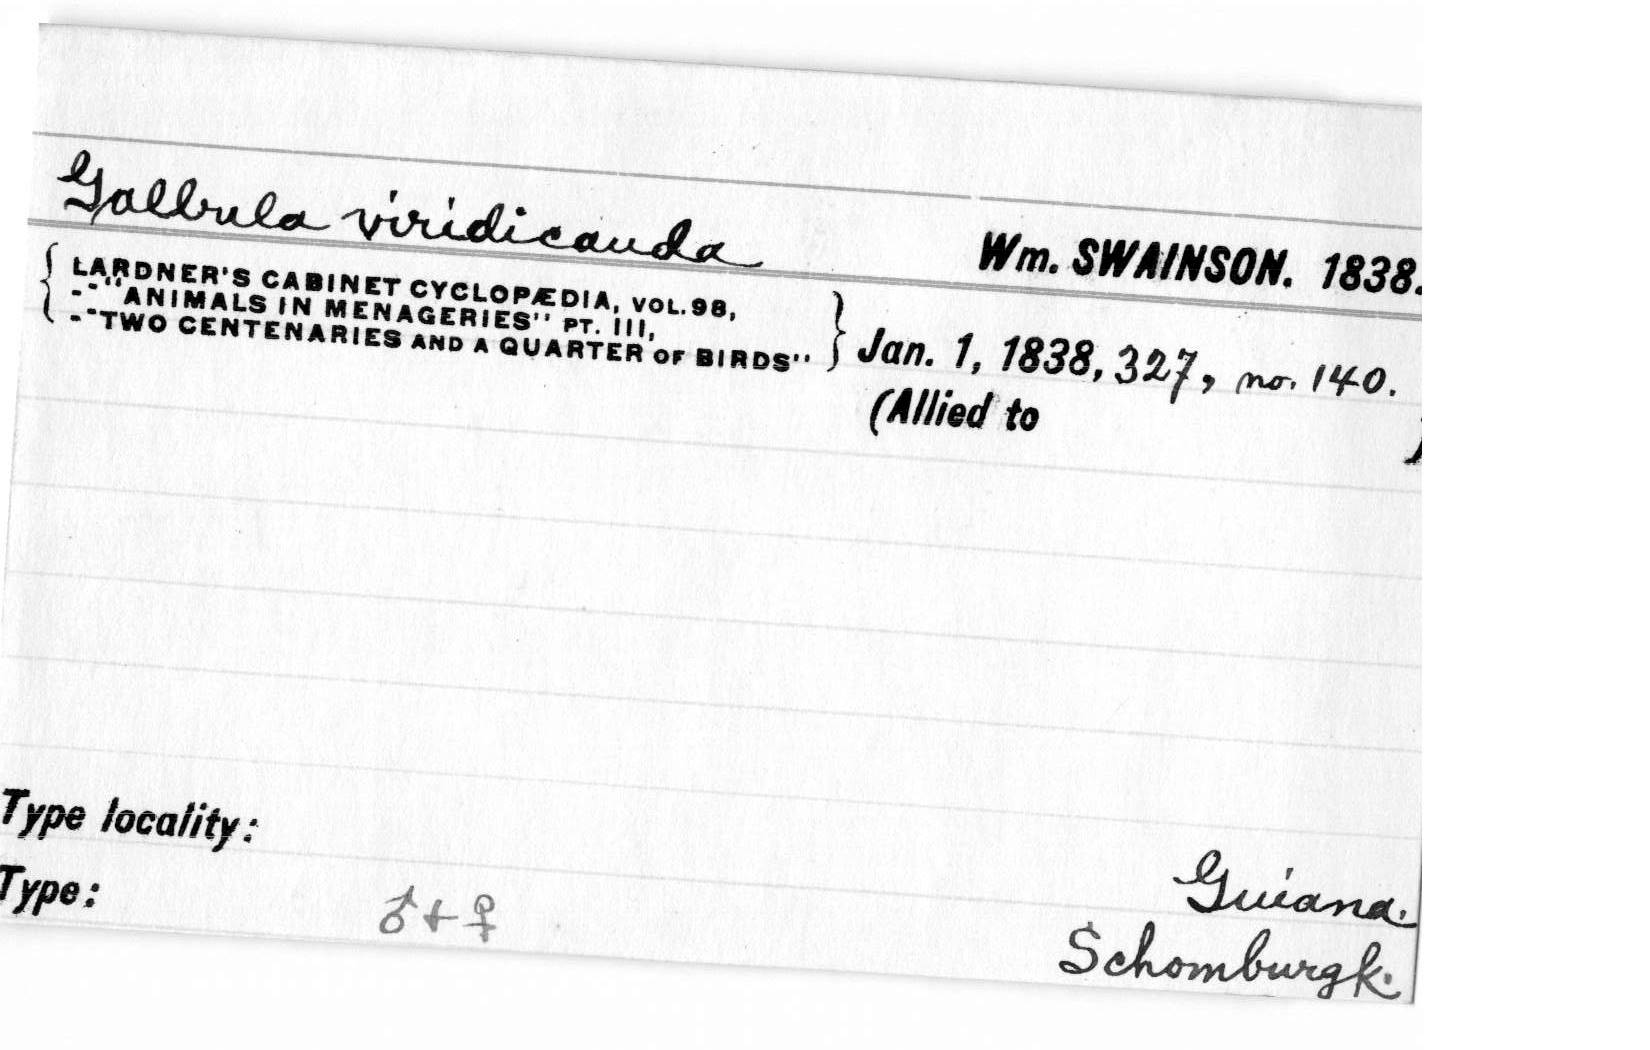 Galbula viridicauda Wm. SWAINSON. 1838.
{ LARDNER'S CABINET CYCLOPÆDIA, VOL. 98,
--"ANIMALS IN MENAGERIES" PT. III,
--"TWO CENTENARIES AND A QUARTER OF BIRDS" } Jan. 1, 1838, 327, no. 140.
(Allied to )
Type locality: Guiana.
Type: ♂ + ♀ Schomburgk.